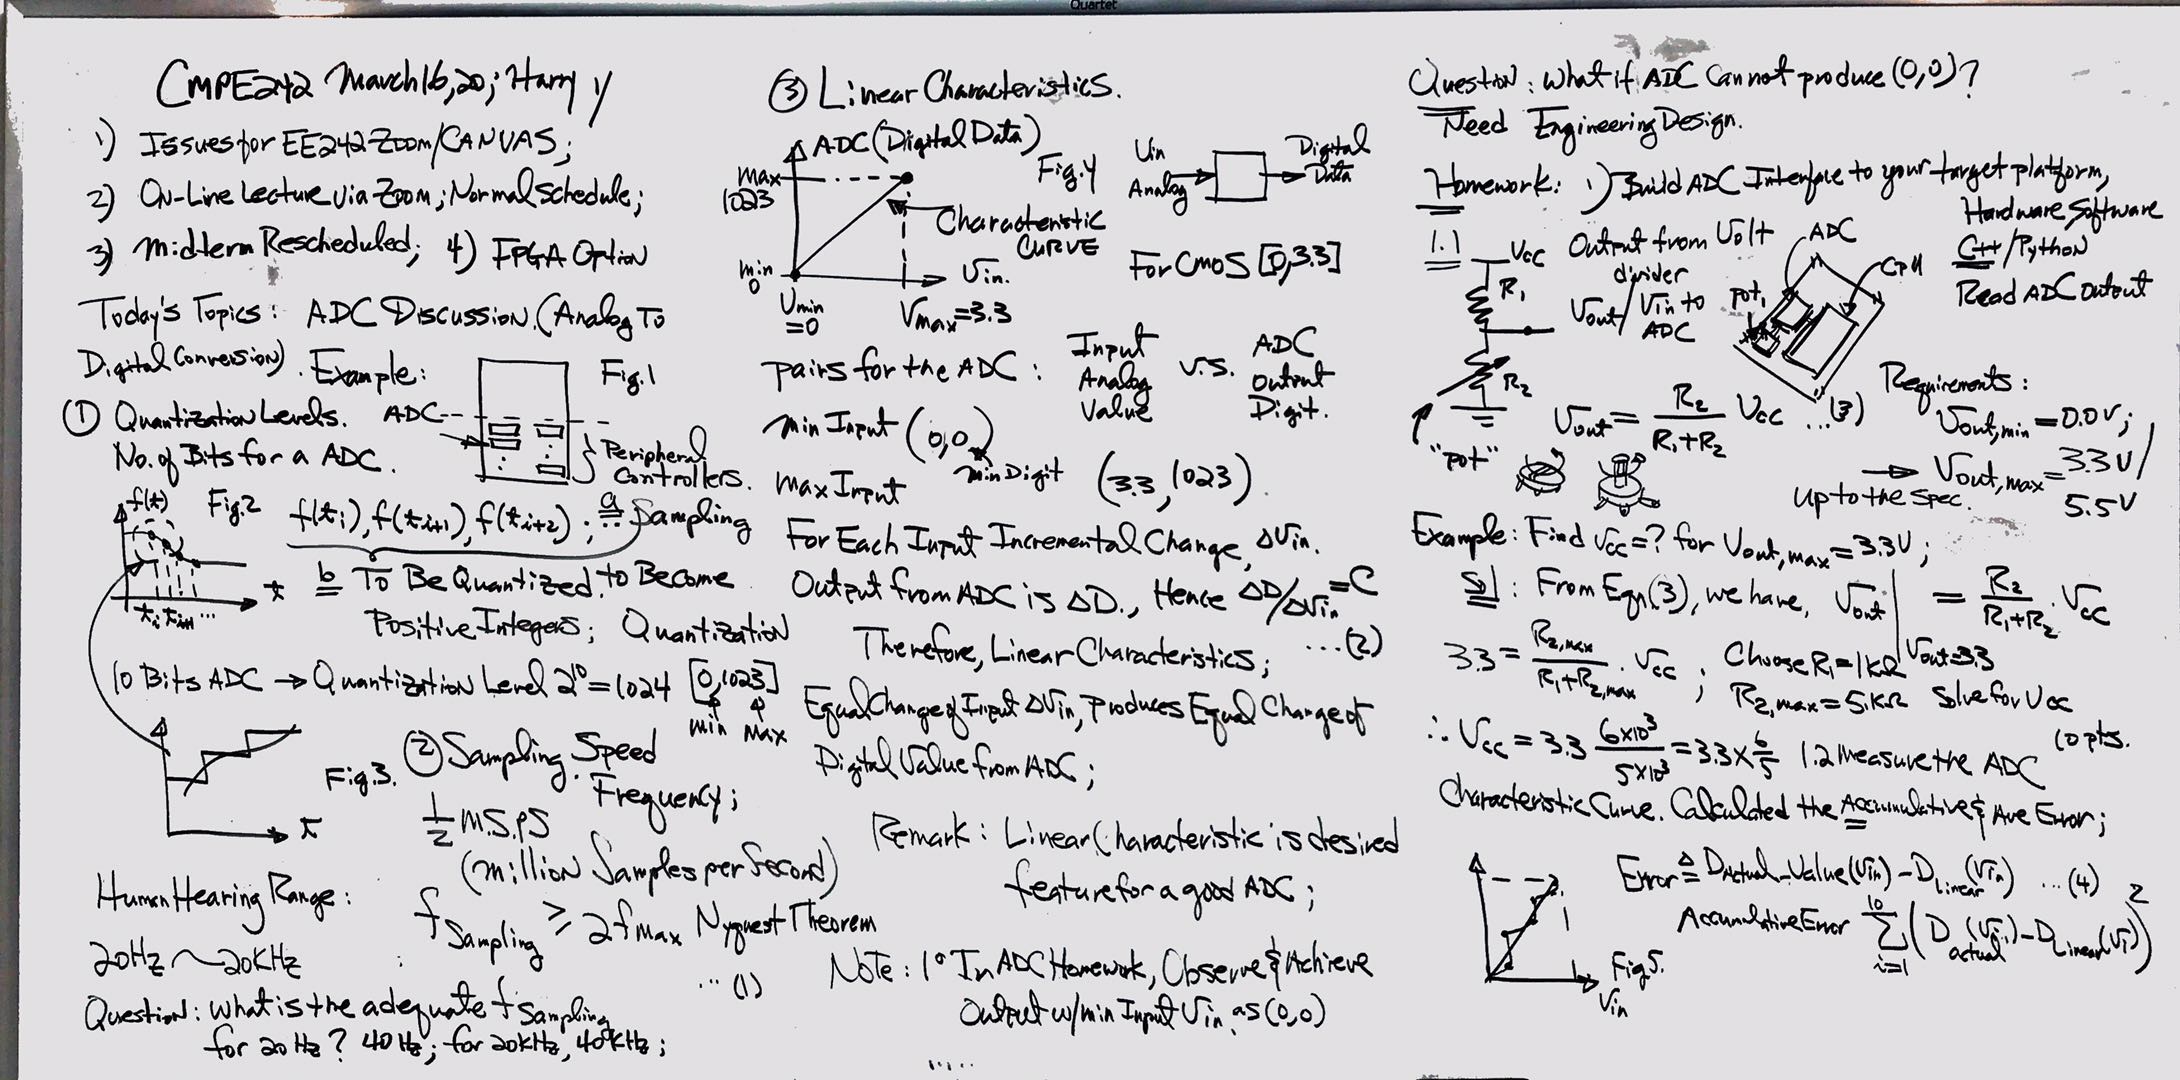 Quartet
CMPE242 March16,20; Harry
1) Issues for EE242 Zoom/CANVAS;
2) On-Line Lecture via Zoom; Normal Schedule;
3) Midterm Rescheduled; 4) FPGA Option
Today's Topics: ADC Discussion. (Analog To
Digital Conversion). Example:
Fig.1
① Quantization Levels.
ADC
No. of Bits for a ADC.
Peripheral
Controllers.
f(t)
Fig.2
f(ti), f(ti+1), f(ti+2). a Sampling
b To Be Quantized, to Become
t
ti ti+1 ...
Positive Integers; Quantization
10 Bits ADC → Quantization Level 2^10 = 1024 [0,1023]
min max
Fig.3.
t
② Sampling Speed
Frequency;
1/2 M.S.PS
(Million Samples per Second)
Human Hearing Range:
20Hz ~ 20KHz
fSampling ≥ 2fmax Nyquest Theorem
... (1)
Question: What is the adequate fSampling
for 20Hz? 40Hz; for 20KHz, 40KHz;
③ Linear Characteristics.
ADC (Digital Data)
max
1023
Fig.4
Characteristic
CURVE
min
0
Vin.
Vmin
=0
Vmax=3.3
Vin
Analog
Digital
Data
For CMOS [0,3.3]
Pairs for the ADC: Input Analog Value v.s. ADC Output Digit.
min Input (0,0)
min Digit
max Input (3.3,1023)
For Each Input Incremental Change, ΔVin.
Output from ADC is ΔD., Hence ΔD/ΔVin = C
... (2)
Therefore, Linear Characteristics;
Equal Change of Input ΔVin, Produces Equal Change of
Digital Value from ADC;
Remark: Linear Characteristic is desired
feature for a good ADC;
Note: 1° In ADC Homework, Observe & Achieve
Output w/min Input Vin, as (0,0)
.....
Question: What if ADC Cannot produce (0,0)?
Need Engineering Design.
Homework: 1) Build ADC Interface to your target platform,
Hardware, Software
C++/Python
Read ADC Output
1.1
Vcc
R1
R2
"Pot"
Output from Volt
divider
Vout/Vin to
ADC
ADC
CPU
Pot,
Vout = R2/(R1+R2) Vcc ... (3)
Requirements:
Vout,min = 0.0V;
→ Vout,max = 3.3V/
5.5V
up to the spec.
Example: Find Vcc=? for Vout,max = 3.3V;
Sol: From Eqn(3), we have, Vout|Vout=3.3 = R2/(R1+R2) · Vcc
3.3 = R2,max/(R1+R2,max) · Vcc ; Choose R1=1KΩ
R2,max = 5KΩ Solve for Vcc
∴ Vcc = 3.3 6x10^3/5x10^3 = 3.3 x 6/5
10 pts.
1.2 Measure the ADC
Characteristic Curve. Calculated the Accumulative & Ave Error;
Error ≜ DActual-Value(Vin) - DLinear(Vin) ... (4)
Accumulative Error Σ i=1 10 (Dactual(Vi) - DLinear(Vi))^2
Fig5.
Vin